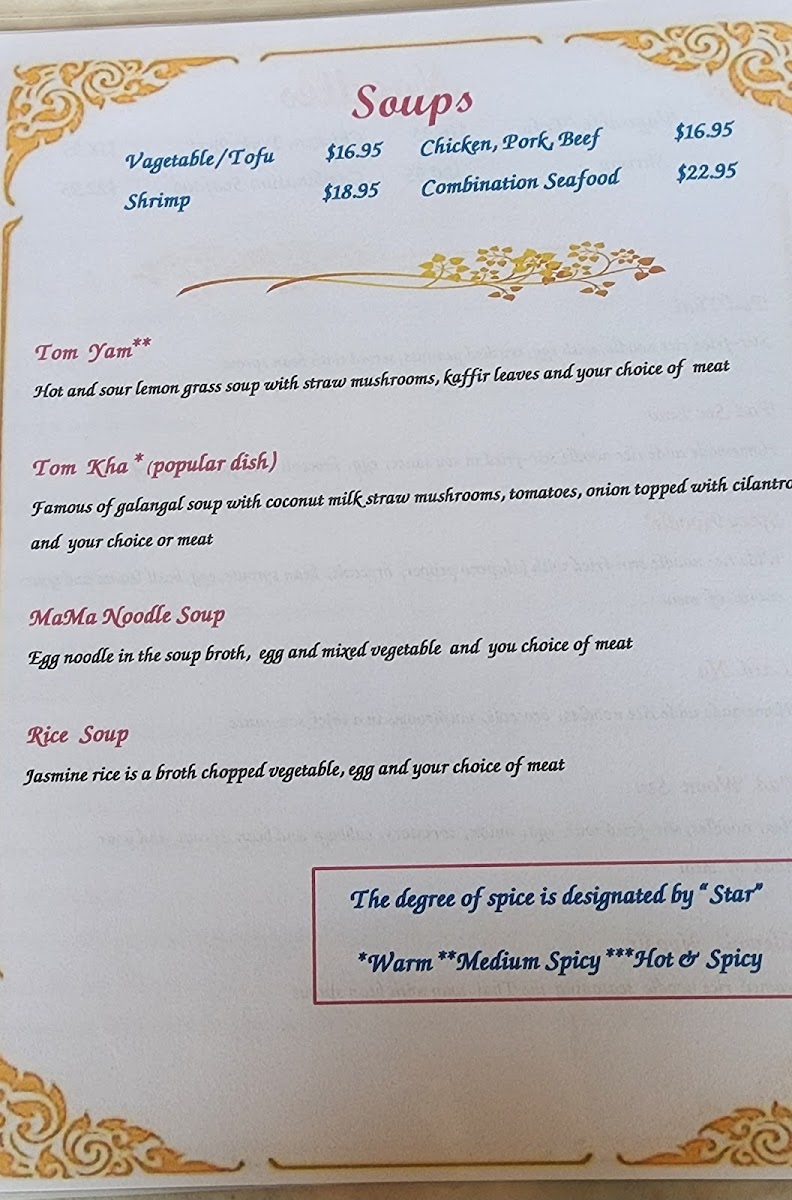 Soups
Vagetable/Tofu $16.95 Chicken, Pork, Beef $16.95
Shrimp $18.95 Combination Seafood $22.95
Tom Yam**
Hot and sour lemon grass soup with straw mushrooms, kaffir leaves and your choice of meat
Tom Kha * (popular dish)
Famous of galangal soup with coconut milk straw mushrooms, tomatoes, onion topped with cilantro
and your choice or meat
MaMa Noodle Soup
Egg noodle in the soup broth, egg and mixed vegetable and you choice of meat
Rice Soup
Jasmine rice is a broth chopped vegetable, egg and your choice of meat
The degree of spice is designated by “Star”
*Warm **Medium Spicy ***Hot & Spicy